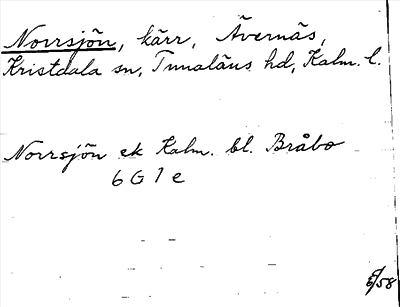 Norrsjön, kärr, Ävernäs,
Kristdala sn, Tunaläns hd, Kalm. l.
Norrsjön ek Kalm. bl. Bråbo
6 G 1 e
6/58